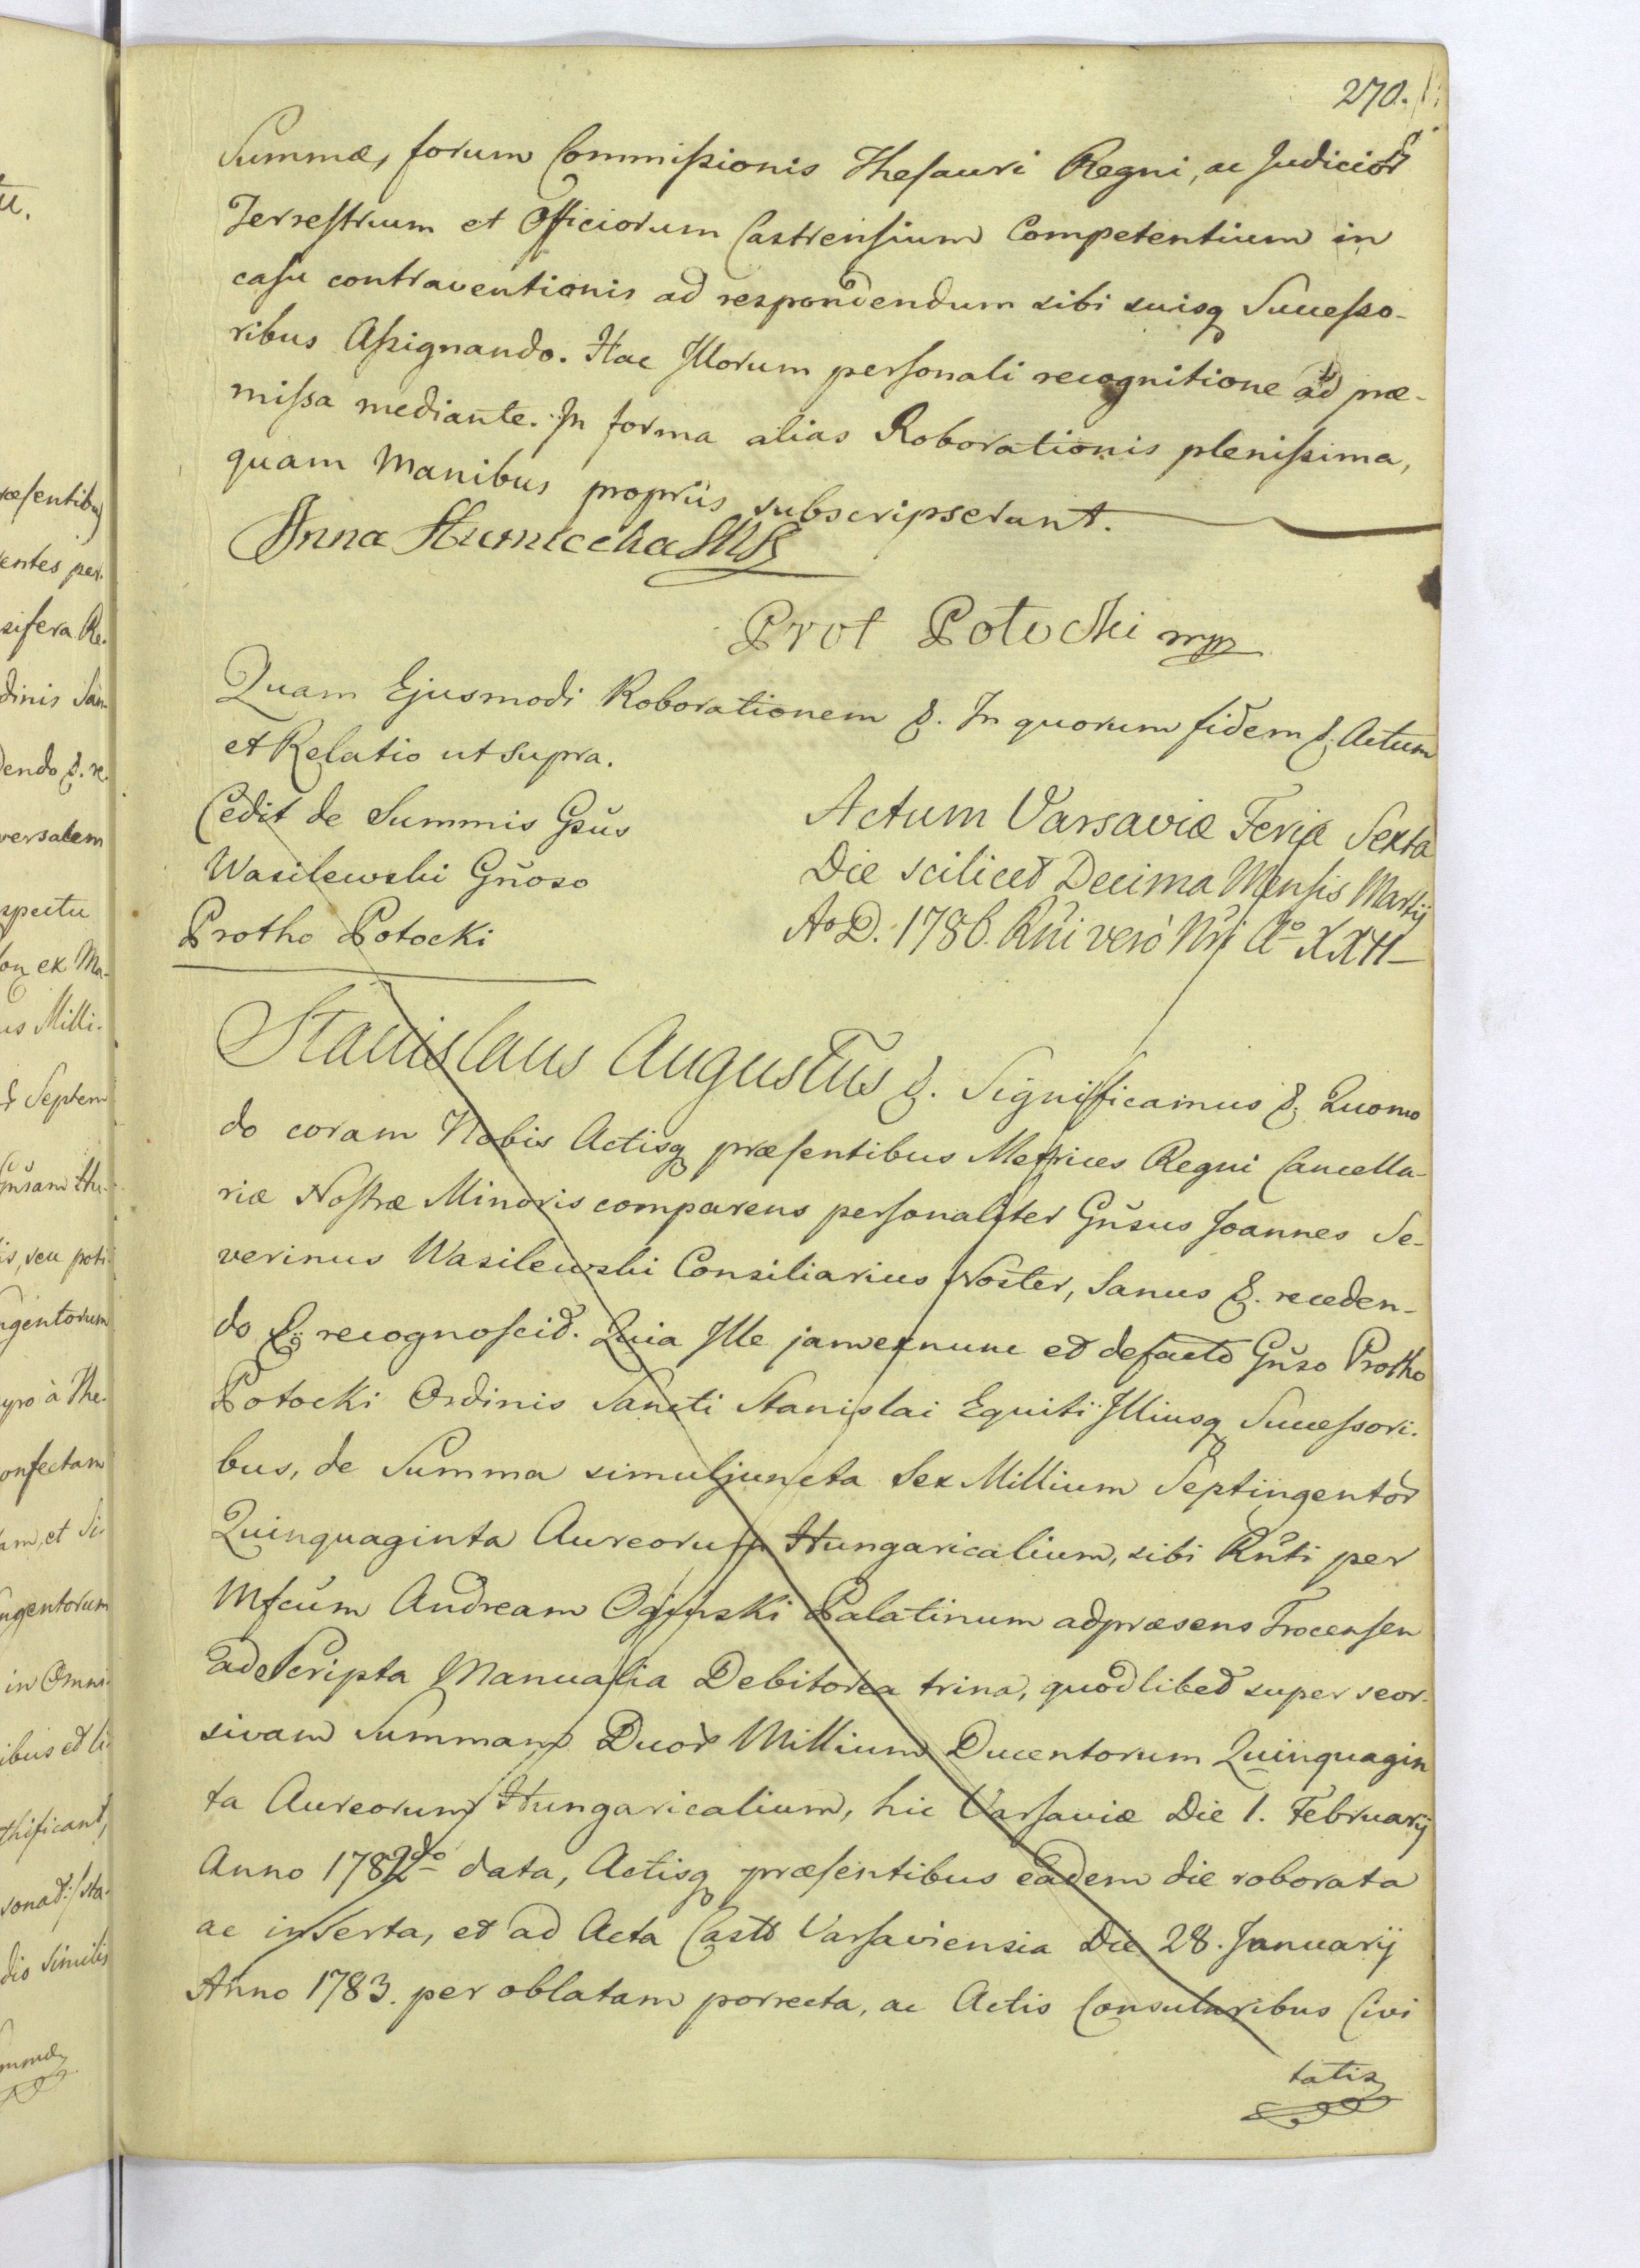 270.
Summæ, forum Commißionis Thesauri Regni, ac Judicior
Terrestrium et Officiorum Castrensium Competentium in
casu contraventionis ad respondendum sibi suisq Succeßo-
ribus Aßignando. Hac Illorum personali recognitione ad præ-
mißa mediante. In forma alias Roborationis plenißima,
quam Manibus propriis subscripserunt.
Anna Humiecka
Prot Potocki mpp
Quam Ejusmodi Roborationem &. In quorum fidem &. Actum
et Relatio ut supra.
Cedit de Summis Gsus
Wasilewski Gnoso
Protho Potocki
Actum Varsaviæ Feria Sexta
Die scilicet Decima Mensis Martij
Ao D. 1786. Rni vero Nri Ao XXII
Stanislaus Augustus &. Significamus &. Quomo
do coram Nobis Actisq præsentibus Metrices Regni Cancella-
riæ Nostræ Minoris comparens personaliter Gnsus Joannes Se-
verinus Wasilewski Consiliarius Noster, Sanus &. receden-
do &. recognoscit. Quia Ille jam exnunc et defacto Gnso Protho
Potocki Ordinis Sancti Stanislai Equiti Illiusq Succeßori-
bus, de Summa simuljuncta Sex Millium Septingentor
Quinquaginta Aureorum Hungaricalium, sibi Rnti per
Mfcum Andream Oginski Palatinum adpræsens Trocensen
ad Scripta Manualia Debitorea trina, quodlibet super seor-
sivam Summam Duor Millium Ducentorum Quinquagin
ta Aureorum Hungaricalium, hic Varsaviæ Die 1. Februarij
Anno 1782do data, Actisq præsentibus eadem die roborata
ac inserta, et ad Acta Castr Varsaviensia Die 28. Januarij
Anno 1783. per oblatam porrecta, ac Actis Consularibus Civi
tatis